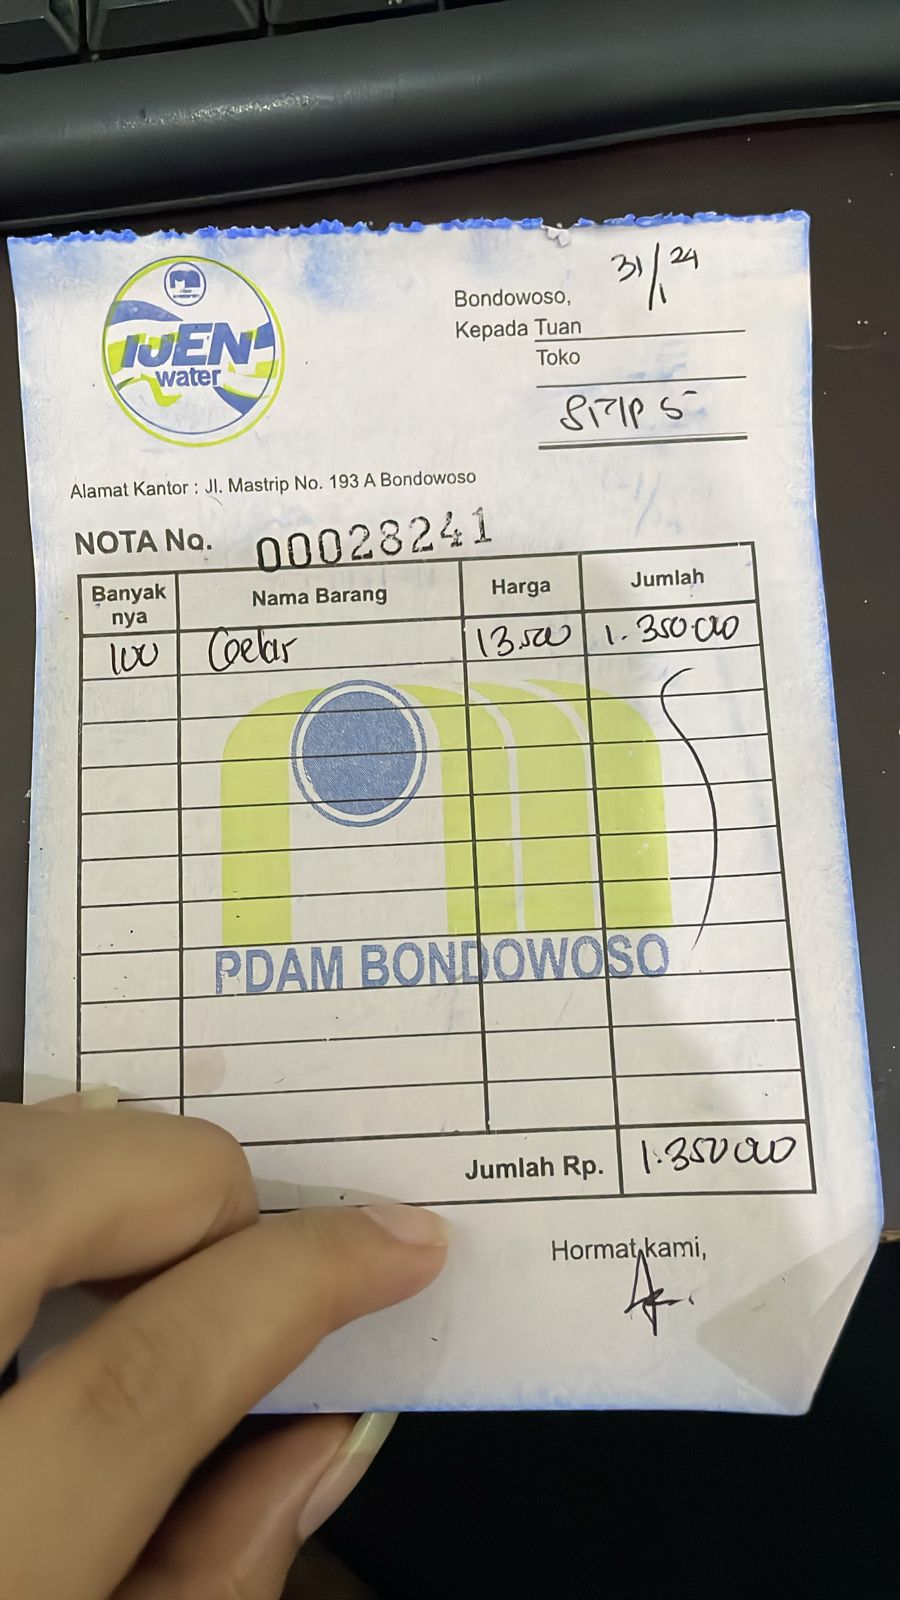 IJEN
water
Bondowoso, 31/1 24
Kepada Tuan
Toko
Alamat Kantor : Jl. Mastrip No. 193 A Bondowoso
NOTA No. 00028241
Banyak nya Nama Barang Harga Jumlah
100 Gelas 13.500 1.350.000
PDAM BONDOWOSO
Jumlah Rp. 1.350000
Hormat kami,